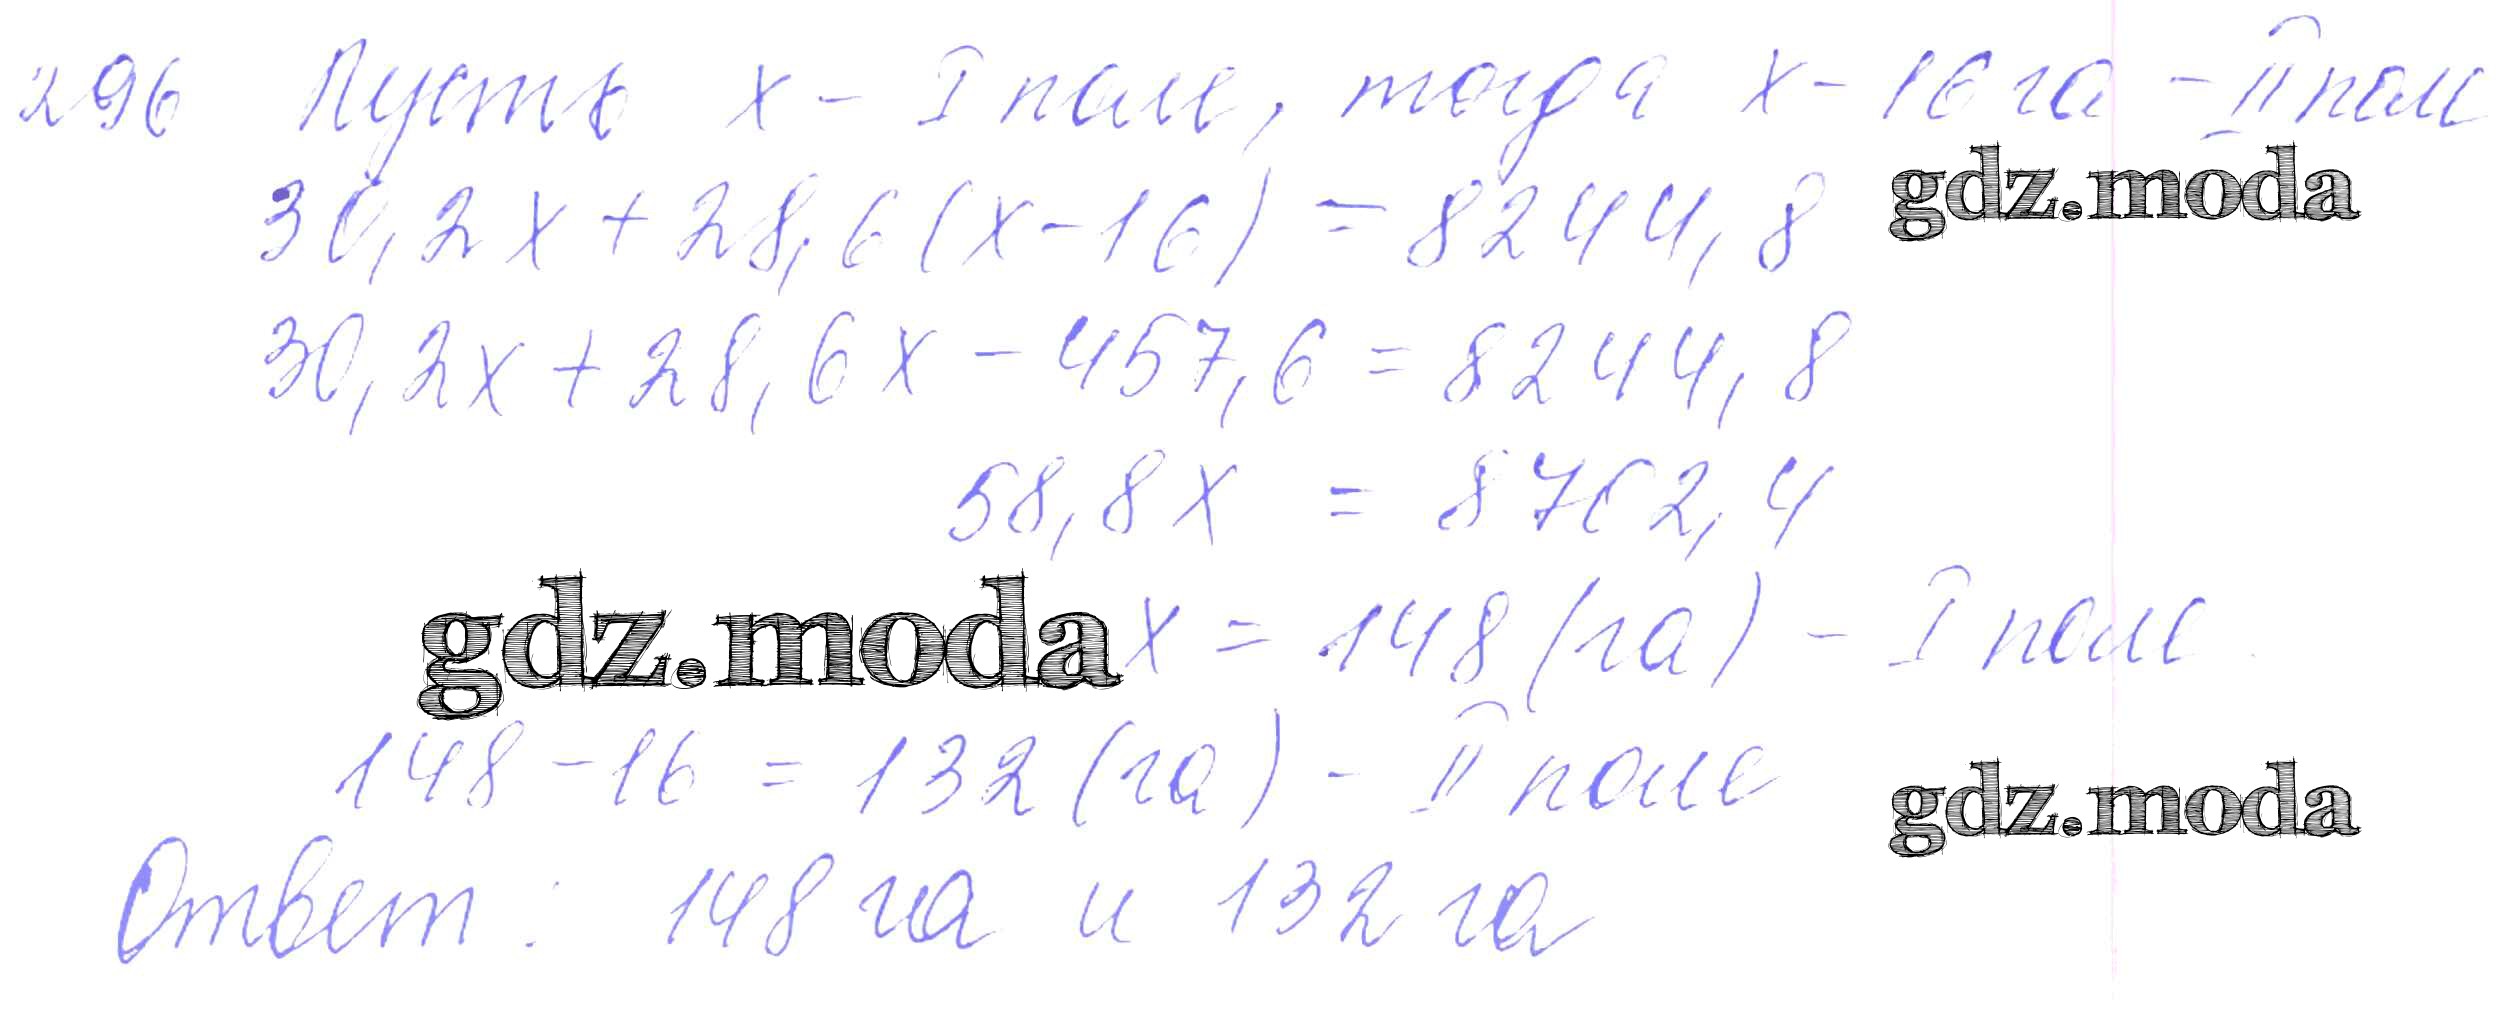 296 Пусть x - I поле, тогда x - 16 га - II поле
gdz.moda
30,2x + 28,6(x - 16) = 8244,8
30,2x + 28,6x - 457,6 = 8244,8
58,8x = 8702,4
gdz.moda
x = 148 (га) - I поле.
148 - 16 = 132 (га) - II поле
gdz.moda
Ответ: 148 га и 132 га